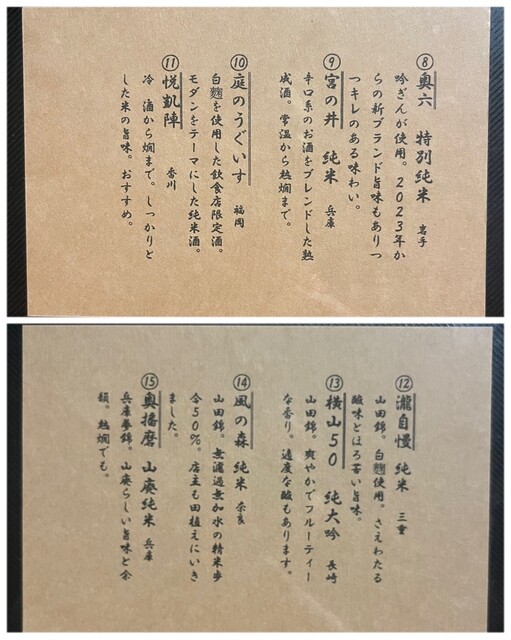 ⑧奥六 特別純米 岩手
吟ぎんが使用。2023年か
らの新ブランド旨味もありつ
つキレのある味わい。
⑨宮の井 純米 兵庫
辛口系のお酒をブレンドした熟
成酒。常温から熱燗まで。
⑩庭のうぐいす 福岡
白麹を使用した飲食店限定酒。
モダンをテーマにした純米酒。
⑪悦凱陣 香川
冷酒から燗まで。しっかりと
した米の旨味。おすすめ。
⑫瀧自慢 純米 三重
山田錦。白麹使用。さえわたる
酸味とほろ苦い旨味。
⑬横山50 純大吟 長崎
山田錦。爽やかでフルーティー
な香り。適度な酸もあります。
⑭風の森 純米 奈良
山田錦。無濾過無加水の精米歩
合50%。店主も田植えにいき
ました。
⑮奥播磨 山廃純米 兵庫
兵庫夢錦。山廃らしい旨味と余
韻。熱燗でも。